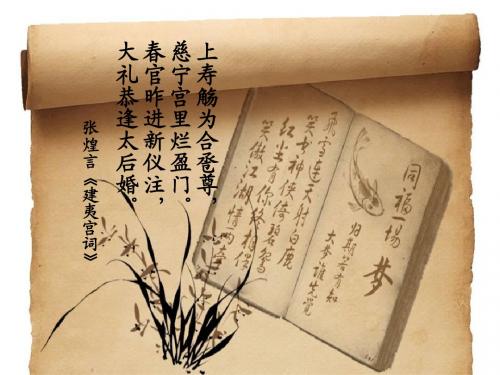 上寿觞为合卺尊，
慈宁宫里烂盈门。
春官昨进新仪注，
大礼恭逢太后婚。
张煌言《建夷宫词》
同福一场
梦
归期若有知
大梦谁先觉
飛雪連天射白鹿
笑书神侠倚碧鸳
红尘有你终相
笑傲江湖情两